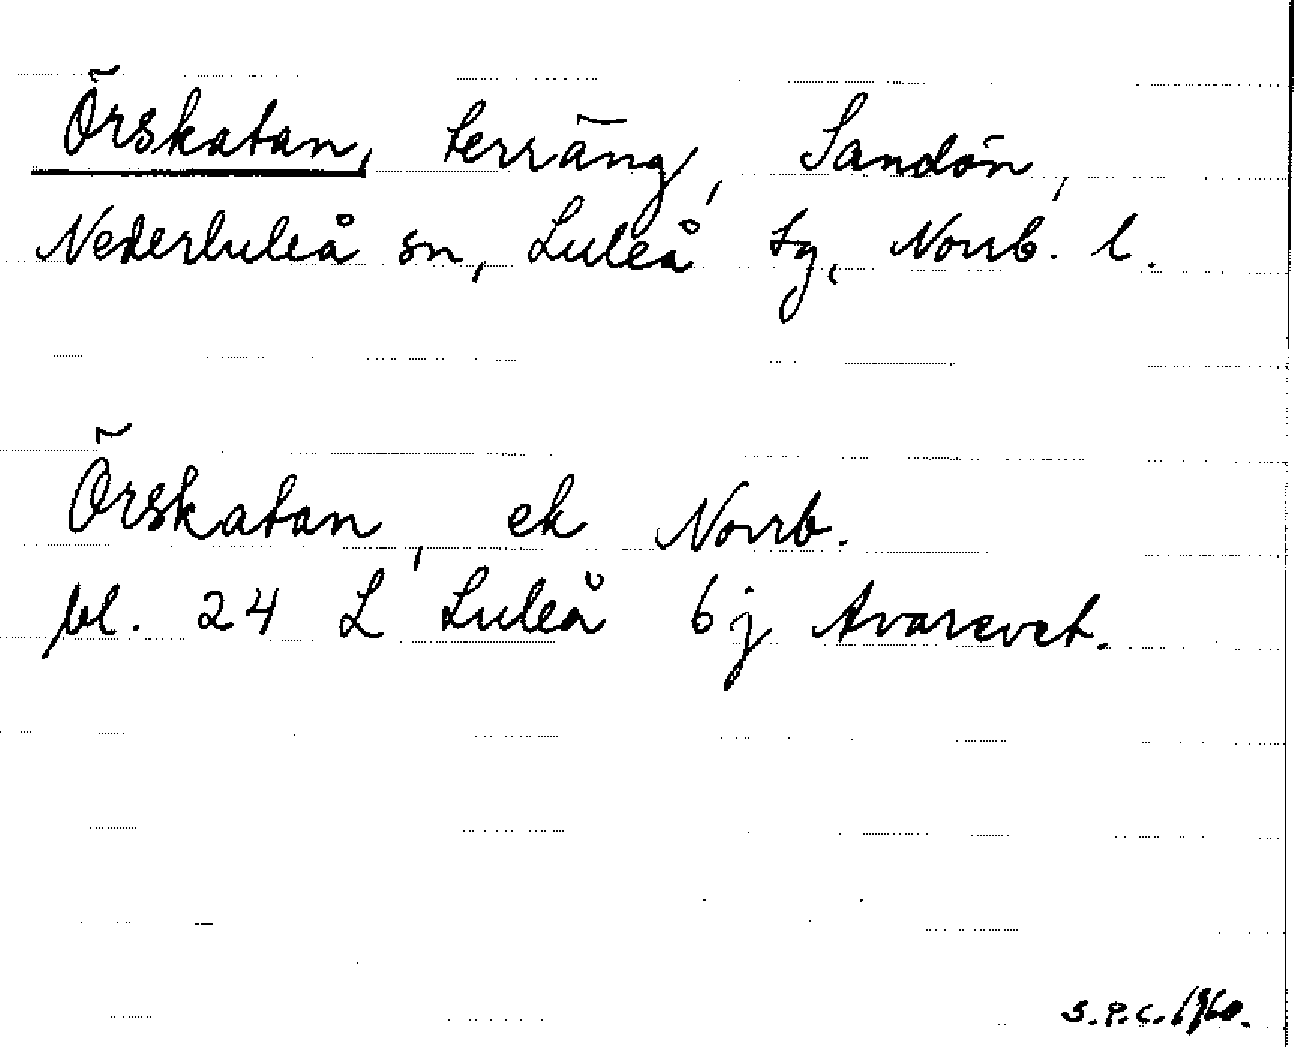 Örskatan, terräng, Sandön,
Nederluleå sn, Luleå tg, Norrb. l.
Örskatan, ek Norrb.
bl. 24 L Luleå 6j Avarevet.
S.P.C. 1960.